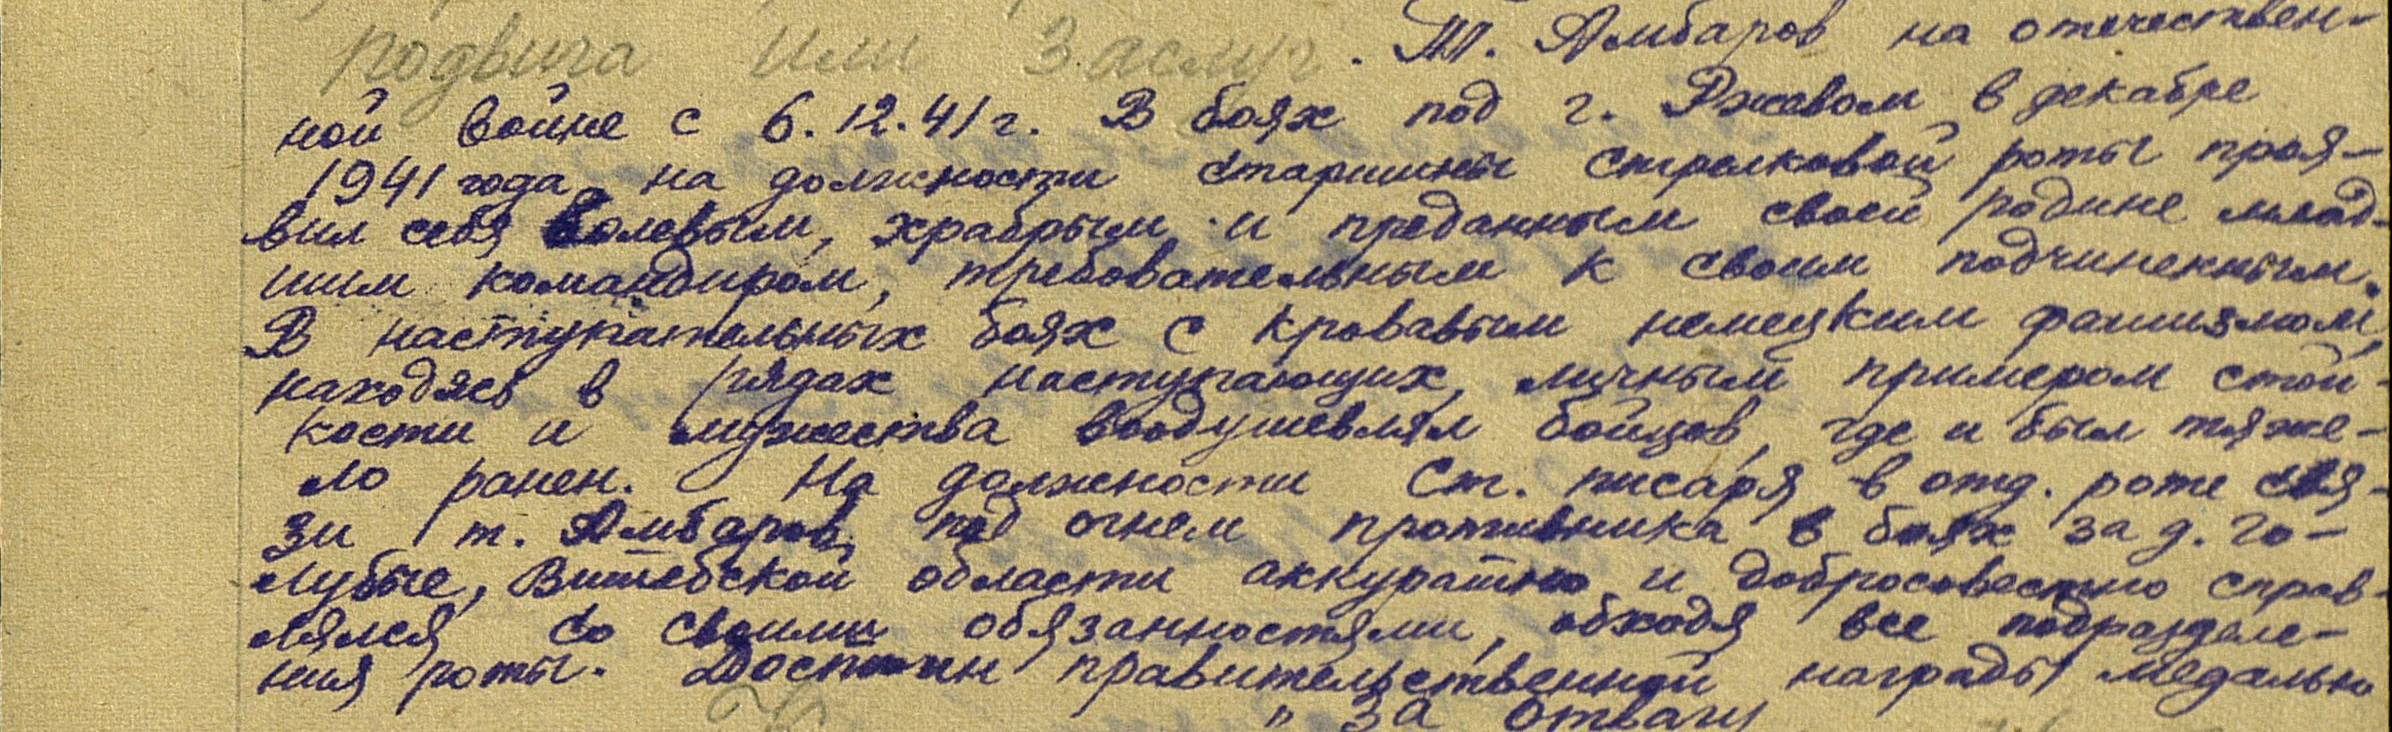 подвига или заслуг. Т. Амбаров на отечествен-
ной войне с 6.12.41 г. В боях под г. Ржевом в декабре
1941 года, на должности старшины стрелковой роты проя-
вил себя волевым, храбрым и преданным своей родине млад-
шим командиром, требовательным к своим подчиненным.
В наступательных боях с кровавым немецким фашизмом,
находясь в рядах наступающих, личным примером стой-
кости и мужества воодушевлял бойцов, где и был тяже-
ло ранен. На должности Ст. писаря в отд. роте свя-
зи т. Амбаров под огнем противника в боях за д. Го-
лубые, Витебской области аккуратно и добросовестно справ-
лялся со своими обязанностями, обходя все подразделе-
ния роты. Достоин правительственной награды медалью
"За отвагу